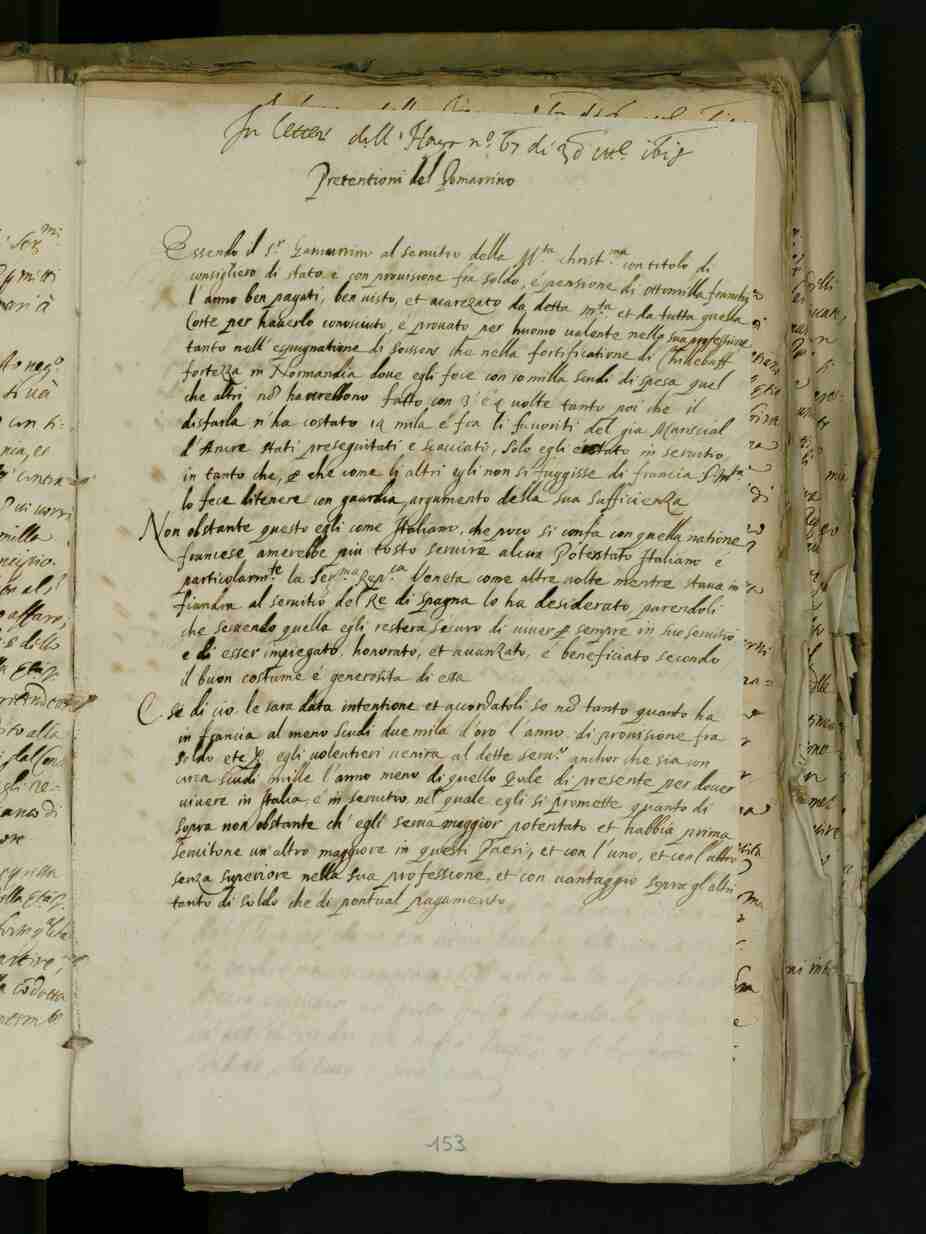 In lettere dell' Haya nº 67 di
Pretentioni del Gamurrino
Essendo il Sr Gamurrino al seruitio della Mta christma con titolo di
consigliero di stato, é con prouisione fra soldo, é pensione di ottomilla franchi
l'anno ben pagati, ben uisto, et acarezato da detta Mta et da tutta quella
Corte per hauerlo conosciuto, é prouato per huomo ualente nella sua professione
tanto nell' espugnatione di Soissons che nella fortificatione di Chilebeuff
fortezza in Normandia doue egli fece con 10 milla scudi di spesa quel
che altri nō haurebbono fatto con 3 é 4 uolte tanto poi che il
disfarla n'ha costato 14 mila é fra li fauoriti del gia Marescial
d'Ancre stati perseguitati e scacciati, solo egli é stato in seruitio,
in tanto che, p̱ che come li altri egli non si fuggisse di francia S. Mta
lo fece ditenere con guardia, argumento della sua sufficienza
Non obstante questo egli come Italiano, che poco si confa con quella natione
francese amerebbe piu tosto seruire alcun Potentato Italiano é
particolarmte la Serma Repca Veneta come altre uolte mentre staua in
fiandra al seruitio del Re di spagna lo ha desiderato parendoli
che seruendo quella egli restera securo di uiuer p̱ sempre in suo seruitio
e di esser impiegato, honorato, et auanzato, é beneficiato secondo
il buon costume é generosita di essa
E se di cio le sara data intentione et acordatoli se nō tanto quanto ha
in francia al meno scudi due mila d'oro l'anno di prouisione fra
soldo egli uolentieri uenira al detto seruo anchor che sia con
circa scudi mille l'anno meno di quello gode di presente per douer
uiuere in Italia, é in seruitio nel quale egli si promette quanto di
sopra non obstante ch' egli serua maggior potentato et habbia prima
seruitone un' altro maggiore in questi Paesi, et con l'uno, et con l'altro
senza superiore nella sua professione, et con uantaggio sopra gl'altri
tanto di soldo che di pontual pagamento
153